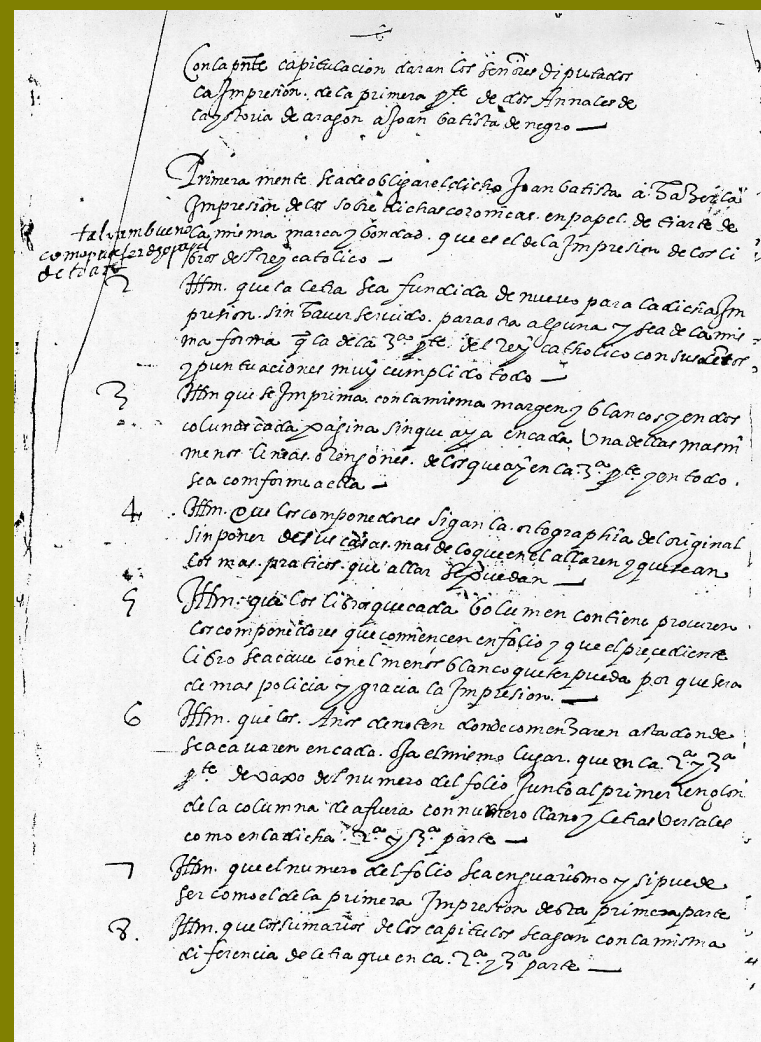 Con la pnte capitulacion daran los señores diputados
la Impresion. de la primera pte de los Annales de
la ystoria de aragon a Joan batista de negro
Primera mente sea de obligar el dicho Joan batista a hazer la
Impresion de las sobre dichas coronicas. en papel. de
la misma marca y bondad. que es el de la Impresion de los li
bros del rey catolico
tal y tan bueno
como
2 Ittm. que la letra sea fundida de nuevo para la dicha Im
presion. sin haver servido. para otra alguna y sea de la mis
ma forma q la de la 3ª pte. del rey catholico con sus
y puntuaciones muy cumplido todo
3 Ittm que se Imprima con la misma margen y blancos y en dos
colunas cada pagina sin que aya en cada Una dellas mas ni
menos lineas. o rengones. de los que ay en la. 3ª pte y en todo.
sea comforme a ella
4 Ittm. Que los componedores sigan la. ortographia del original
sin poner de sus casas. mas de lo que en el allaren y que sean
los mas. praticos. que allar se puedan
5 Ittm. que los libros que cada bolumen contiene procuren
los componedores que comiencen en folio y que el precediente
libro se acave con el menos blanco que ser pueda por que sera
de mas policia y gracia la Impresion.
6 Ittm. que los. Años denoten donde comenzaren asta donde
se acavaren en cada. oja el mismo lugar. que en la 2ª y 3ª
pte devaxo del numero del folio Junto al primer renglon
de la columna de afuera con numero llano y letras versales
como en la dicha. 2ª y 3ª parte
7 Ittm. que el numero del folio sea en guarismo y si puede
ser como el de la primera Impresion desta primera parte
8. Ittm. que los sumarios de los capitulos se agan con la misma
diferencia de letra que en la. 2ª y 3ª parte